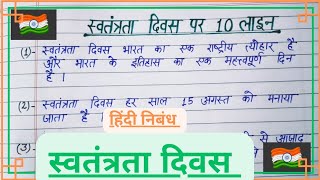 स्वतंत्रता दिवस पर 10 लाइन
(1)- स्वतंत्रता दिवस भारत का एक राष्ट्रीय त्यौहार है
और भारत के इतिहास का एक महत्त्वपूर्ण दिन
है ।
(2)- स्वतंत्रता दिवस हर साल 15 अगस्त को मनाया
जाता है ।
हिंदी निबंध
(3)- से आजाद
स्वतंत्रता दिवस